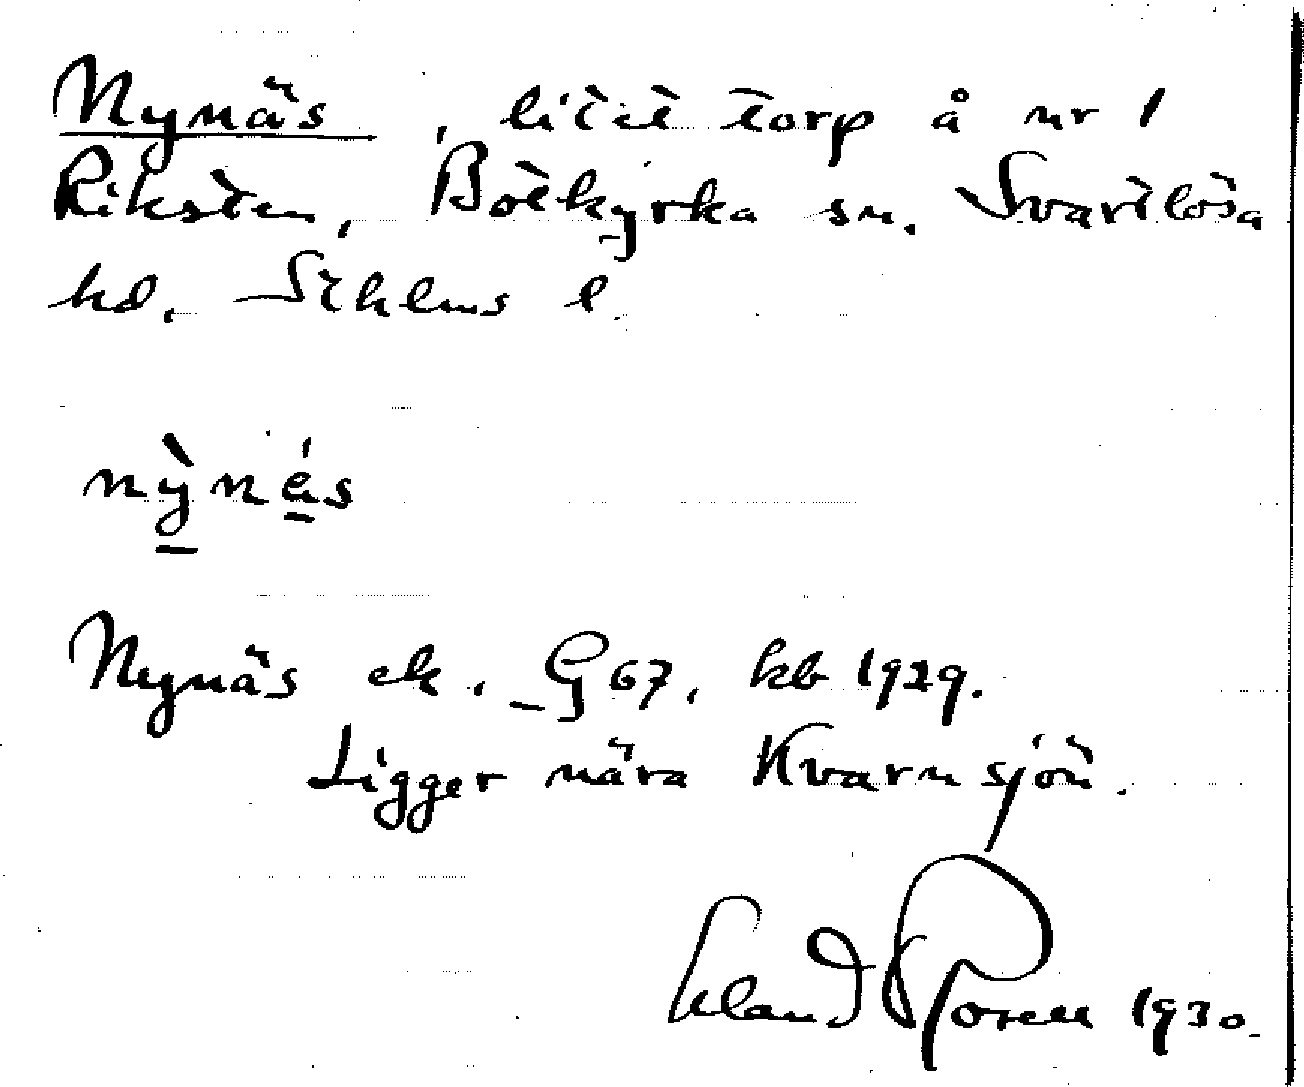 Nynäs, litet torp å nr 1
Riksten, Botkyrka sn. Svartlösa
hd. Sthlms l.
nỳnä́s
Nynäs ek. G 67, kb 1929.
Ligger nära Kvarnsjön.
Erland Rosell 1930.